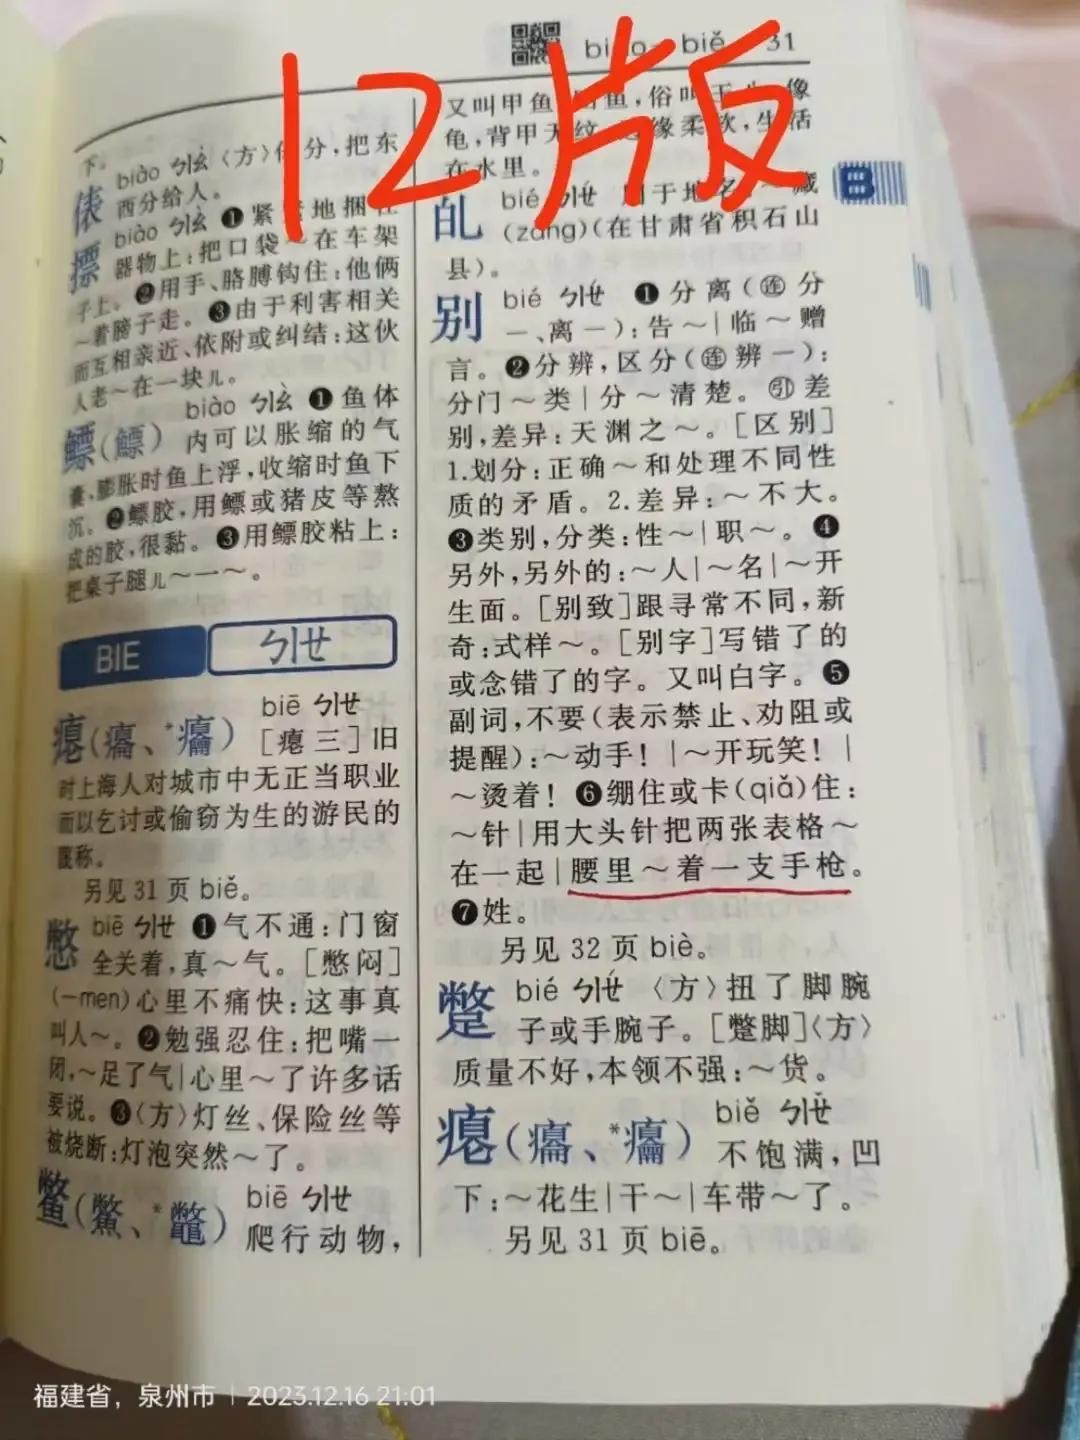 biǎo—biě 31
12版
下。
俵 biào ㄅㄧㄠˋ 〈方〉分，把东
西分给人。
摽 biào ㄅㄧㄠˋ ❶紧紧地捆在
器物上：把口袋～在车架
子上。❷用手、胳膊钩住：他俩
～着膀子走。❸由于利害相关
而互相亲近、依附或纠结：这伙
人老～在一块儿。
鳔(鰾) biào ㄅㄧㄠˋ ❶鱼体
内可以胀缩的气
囊，膨胀时鱼上浮，收缩时鱼下
沉。❷鳔胶，用鳔或猪皮等熬
成的胶，很黏。❸用鳔胶粘上：
把桌子腿儿～一～。
BIE ㄅㄧㄝ
瘪(癟、*癟) biē ㄅㄧㄝ
［瘪三］旧
时上海人对城市中无正当职业
而以乞讨或偷窃为生的游民的
蔑称。
另见 31 页 biě。
憋 biē ㄅㄧㄝ ❶气不通：门窗
全关着，真～气。［憋闷］
(—men)心里不痛快：这事真
叫人～。❷勉强忍住：把嘴一
闭，～足了气|心里～了许多话
要说。❸〈方〉灯丝、保险丝等
被烧断：灯泡突然～了。
鳖(鱉、*鼈) biē ㄅㄧㄝ
爬行动物，
又叫甲鱼鱼，俗叫王像
龟，背甲无纹，边缘柔软，生活
在水里。
癿 bié ㄅㄧㄝˊ 用于地名～藏
(zàng)(在甘肃省积石山
县)。
别 bié ㄅㄧㄝˊ ❶分离(㊣分
—、离—)：告～|临～赠
言。❷分辨，区分(㊣辨—)：
分门～类|分～清楚。㊣差
别，差异：天渊之～。［区别］
1.划分：正确～和处理不同性
质的矛盾。2.差异：～不大。
❸类别，分类：性～|职～。❹
另外，另外的：～人|～名|～开
生面。［别致］跟寻常不同，新
奇：式样～。［别字］写错了的
或念错了的字。又叫白字。❺
副词，不要(表示禁止、劝阻或
提醒)：～动手！|～开玩笑！|
～烫着！❻绷住或卡(qiǎ)住：
～针|用大头针把两张表格～
在一起|腰里～着一支手枪。
❼姓。
另见 32 页 biè。
蹩 bié ㄅㄧㄝˊ 〈方〉扭了脚腕
子或手腕子。［蹩脚］〈方〉
质量不好，本领不强：～货。
瘪(癟、*癟) biě ㄅㄧㄝˇ
不饱满，凹
下：～花生|干～|车带～了。
另见 31 页 biē。
B
福建省，泉州市 | 2023.12.16 21:01